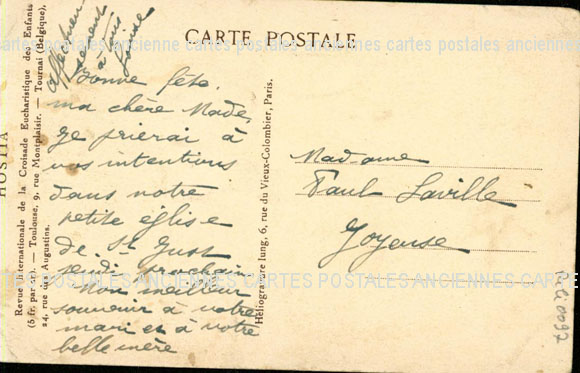 CARTE POSTALE
HOSTIA
Revue Internationale de la Croisade Eucharistique des Enfants
(5 fr. par an). — Toulouse, 9, rue Montplaisir. — Tournai (Belgique),
24, rue des Augustins.
affectueu
sement
à tous
Bonne fête,
ma chère Made,
je prierai à
vos intentions
dans notre
petite église
de St Just
jeudi prochain
Mon meilleur
souvenir à votre
mari et à votre
belle mère
Héliogravure Iung, 6, rue du Vieux-Colombier, Paris.
Madame
Paul Laville
Joyeuse
cartes postales anciennes cartes postales anciennes cartes postales
CARTES POSTALES ANCIENNES CARTES POSTALES ANCIENNES CARTES